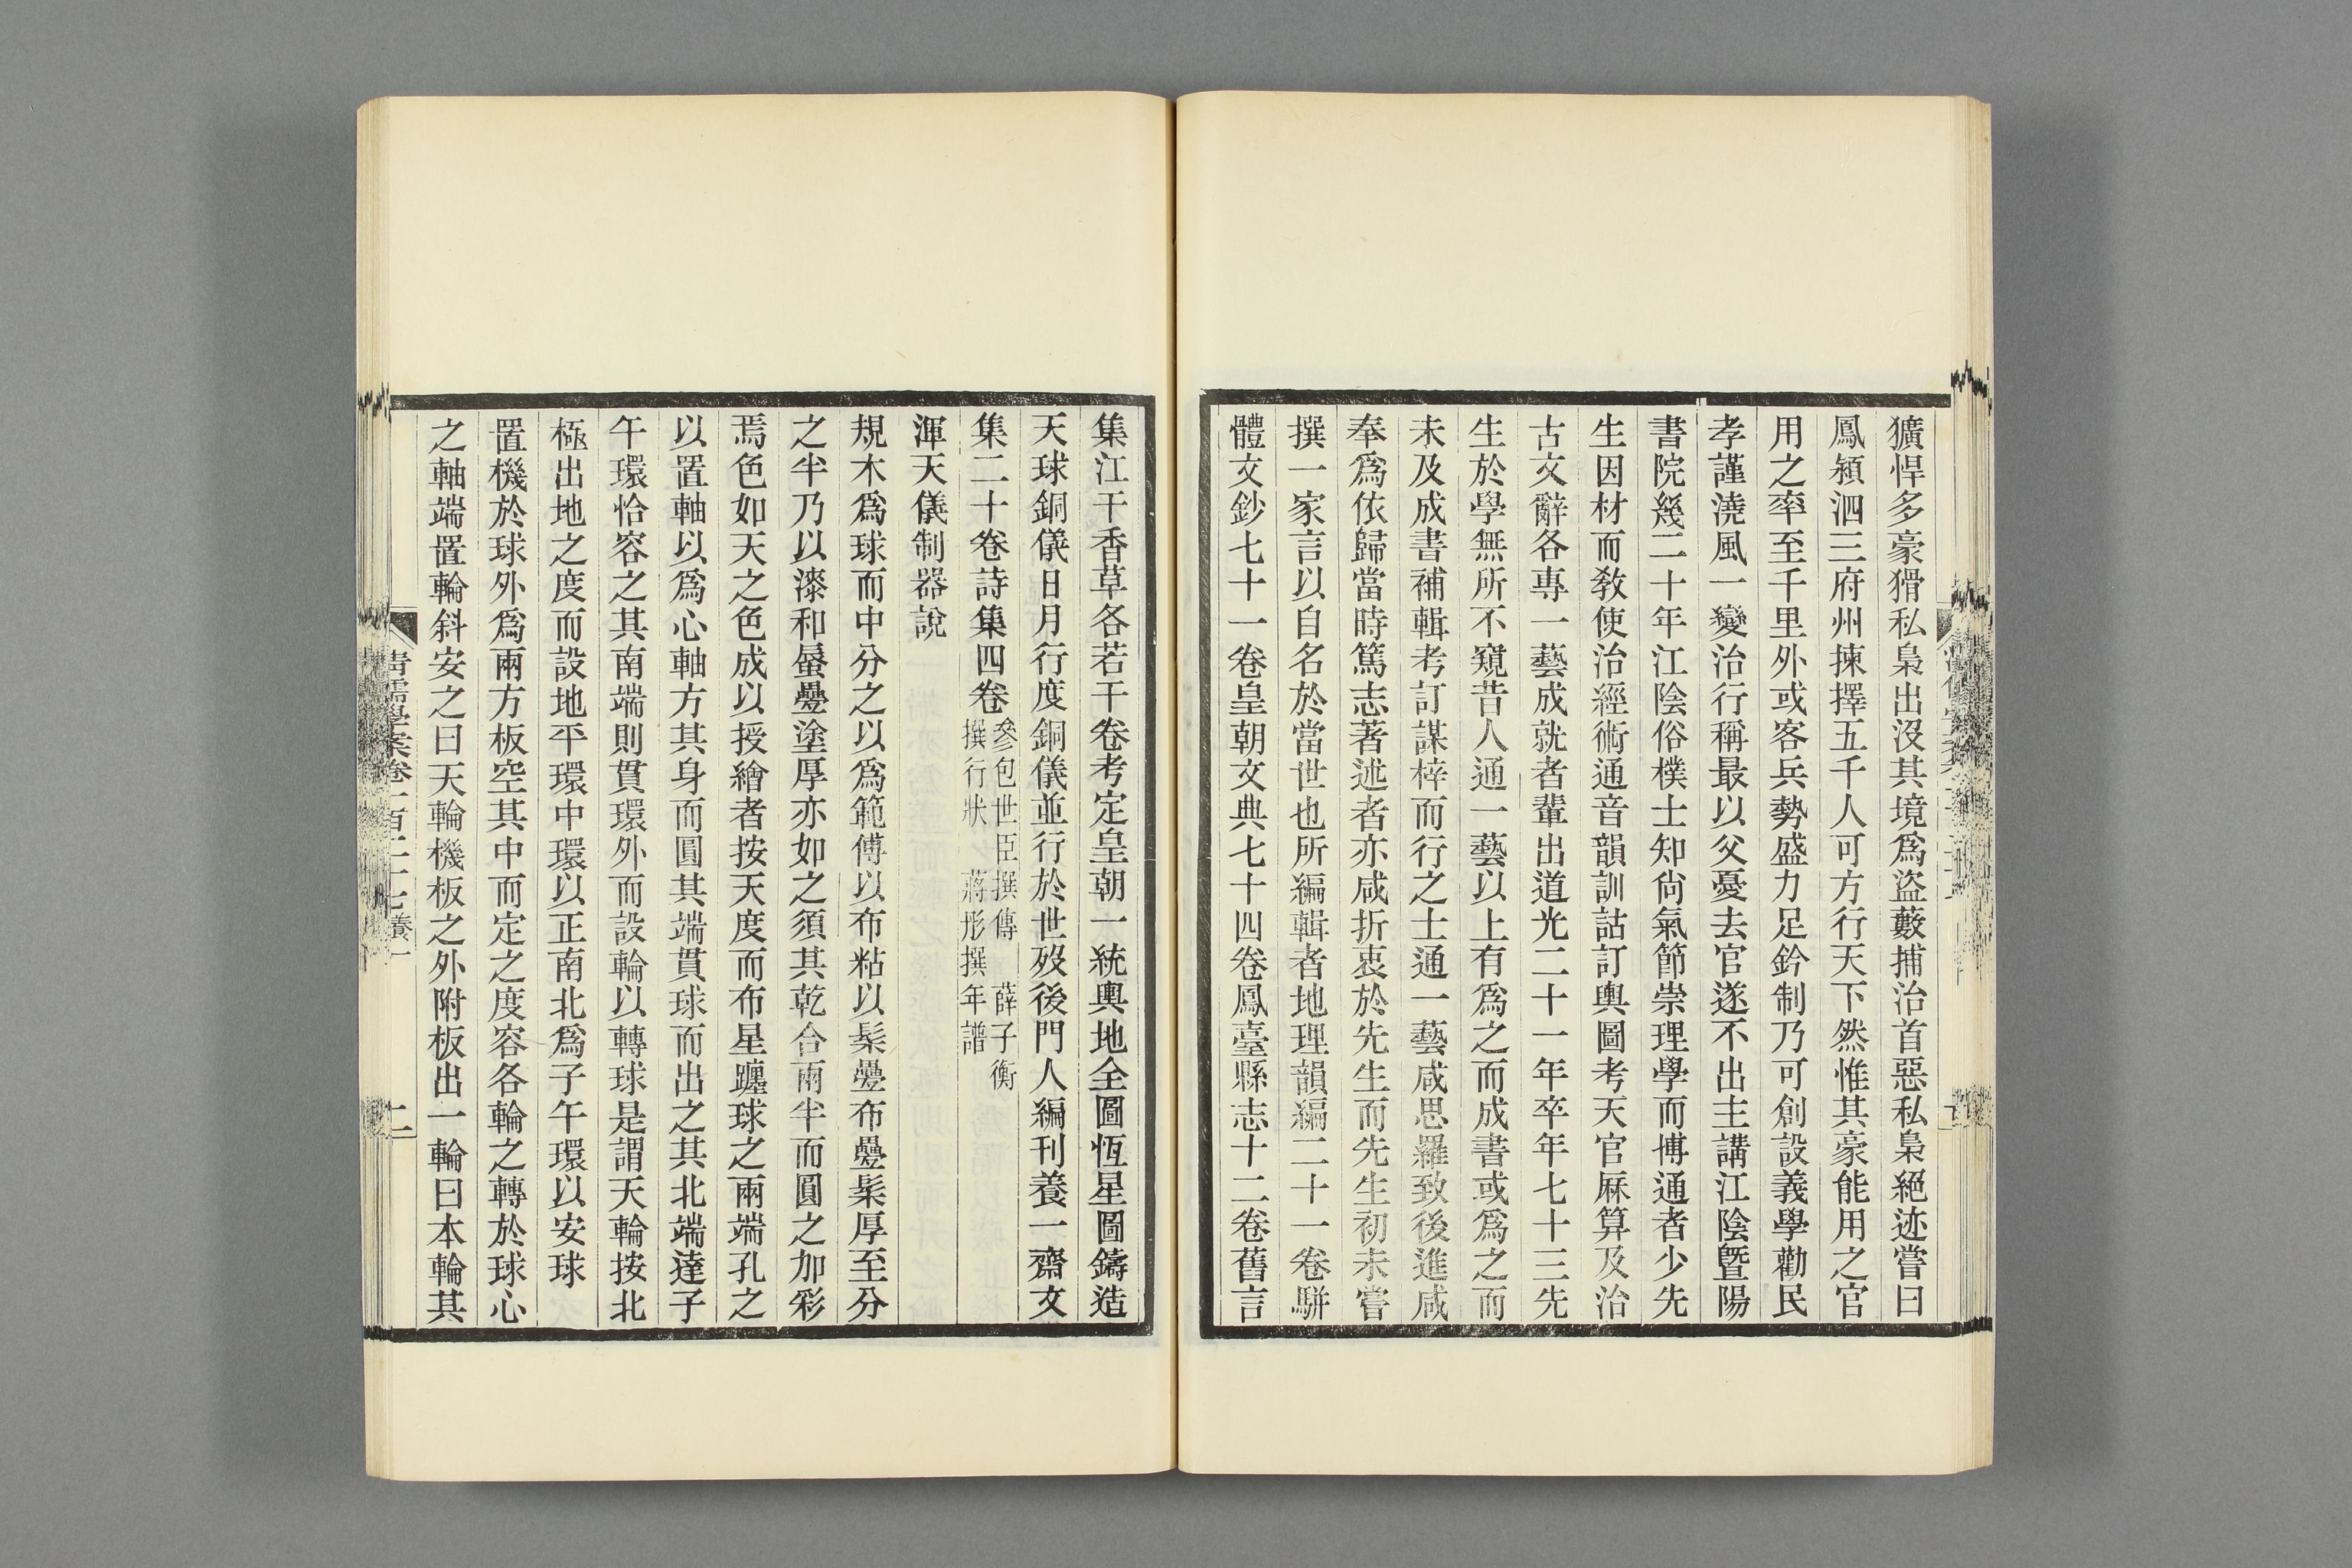 獷悍多豪猾私梟出沒其境爲盜藪捕治首惡私梟絕迹嘗曰
鳳潁泗三府州揀擇五千人可方行天下然惟其豪能用之官
用之率至千里外或客兵勢盛力足鈐制乃可創設義學勸民
孝謹澆風一變治行稱最以父憂去官遂不出主講江陰暨陽
書院幾二十年江陰俗樸士知尙氣節崇理學而博通者少先
生因材而敎使治經術通音韻訓詁訂輿圖考天官厤算及治
古文辭各專一藝成就者輩出道光二十一年卒年七十三先
生於學無所不窺昔人通一藝以上有爲之而成書或爲之而
未及成書補輯考訂謀梓而行之士通一藝咸思羅致後進咸
奉爲依歸當時篤志著述者亦咸折衷於先生而先生初未嘗
撰一家言以自名於當世也所編輯者地理韻編二十一卷駢
體文鈔七十一卷皇朝文典七十四卷鳳臺縣志十二卷舊言
集江干香草各若干卷考定皇朝一統輿地全圖恆星圖鑄造
天球銅儀日月行度銅儀並行於世歿後門人編刊養一齋文
集二十卷詩集四卷參包世臣撰傳 薛子衡撰行狀 蔣彤撰年譜
渾天儀制器說
規木爲球而中分之以爲範傅以布粘以髹疊布疊髹厚至分
之半乃以漆和蜃疊塗厚亦如之須其乾合兩半而圓之加彩
焉色如天之色成以授繪者按天度而布星躔球之兩端孔之
以置軸以爲心軸方其身而圓其端貫球而出之其北端達子
午環恰容之其南端則貫環外而設輪以轉球是謂天輪按北
極出地之度而設地平環中環以正南北爲子午環以安球
置機於球外爲兩方板空其中而定之度容各輪之轉於球心
之軸端置輪斜安之曰天輪機板之外附板出一輪曰本輪其
清儒學案卷一百二十七養一 二